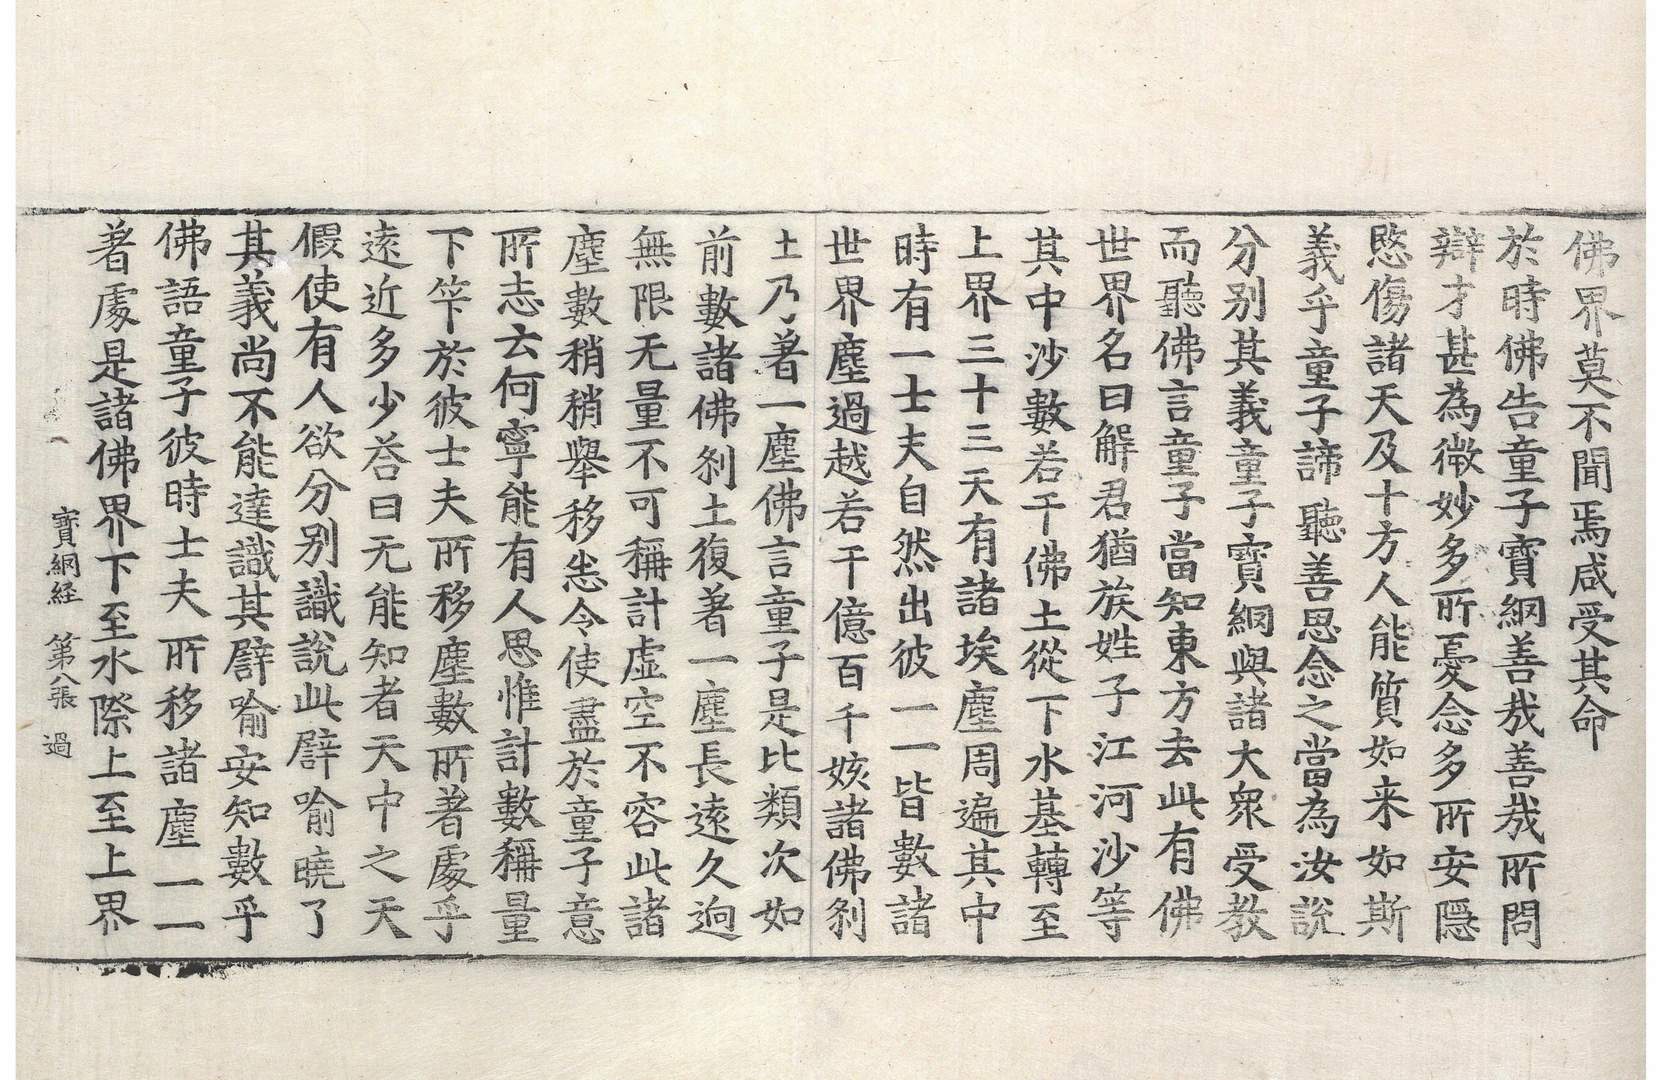 佛界莫不聞焉咸受其命
於時佛告童子寶網善哉善哉所問
辯才甚為微妙多所憂念多所安隱
愍傷諸天及十方人能質如来如斯
義乎童子諦聽善思念之當為汝說
分別其義童子寶網與諸大眾受教
而聽佛言童子當知東方去此有佛
世界名曰解君猶族姓子江河沙等
其中沙數若干佛土從下水基轉至
上界三十三天有諸埃塵周遍其中
時有一士夫自然出彼一一皆數諸
世界塵過越若干億百千姟諸佛剎
土乃著一塵佛言童子是比類次如
前數諸佛剎土復著一塵長遠久逈
無限无量不可稱計虛空不容此諸
塵數稍稍舉移悉令使盡於童子意
所志云何寧能有人思惟計數稱量
下竿於彼士夫所移塵數所著處乎
遠近多少荅曰无能知者天中之天
假使有人欲分別識說此譬喻曉了
其義尚不能達識其譬喻安知數乎
佛語童子彼時士夫所移諸塵一一
著處是諸佛界下至水際上至上界
寶網経 第八張 過